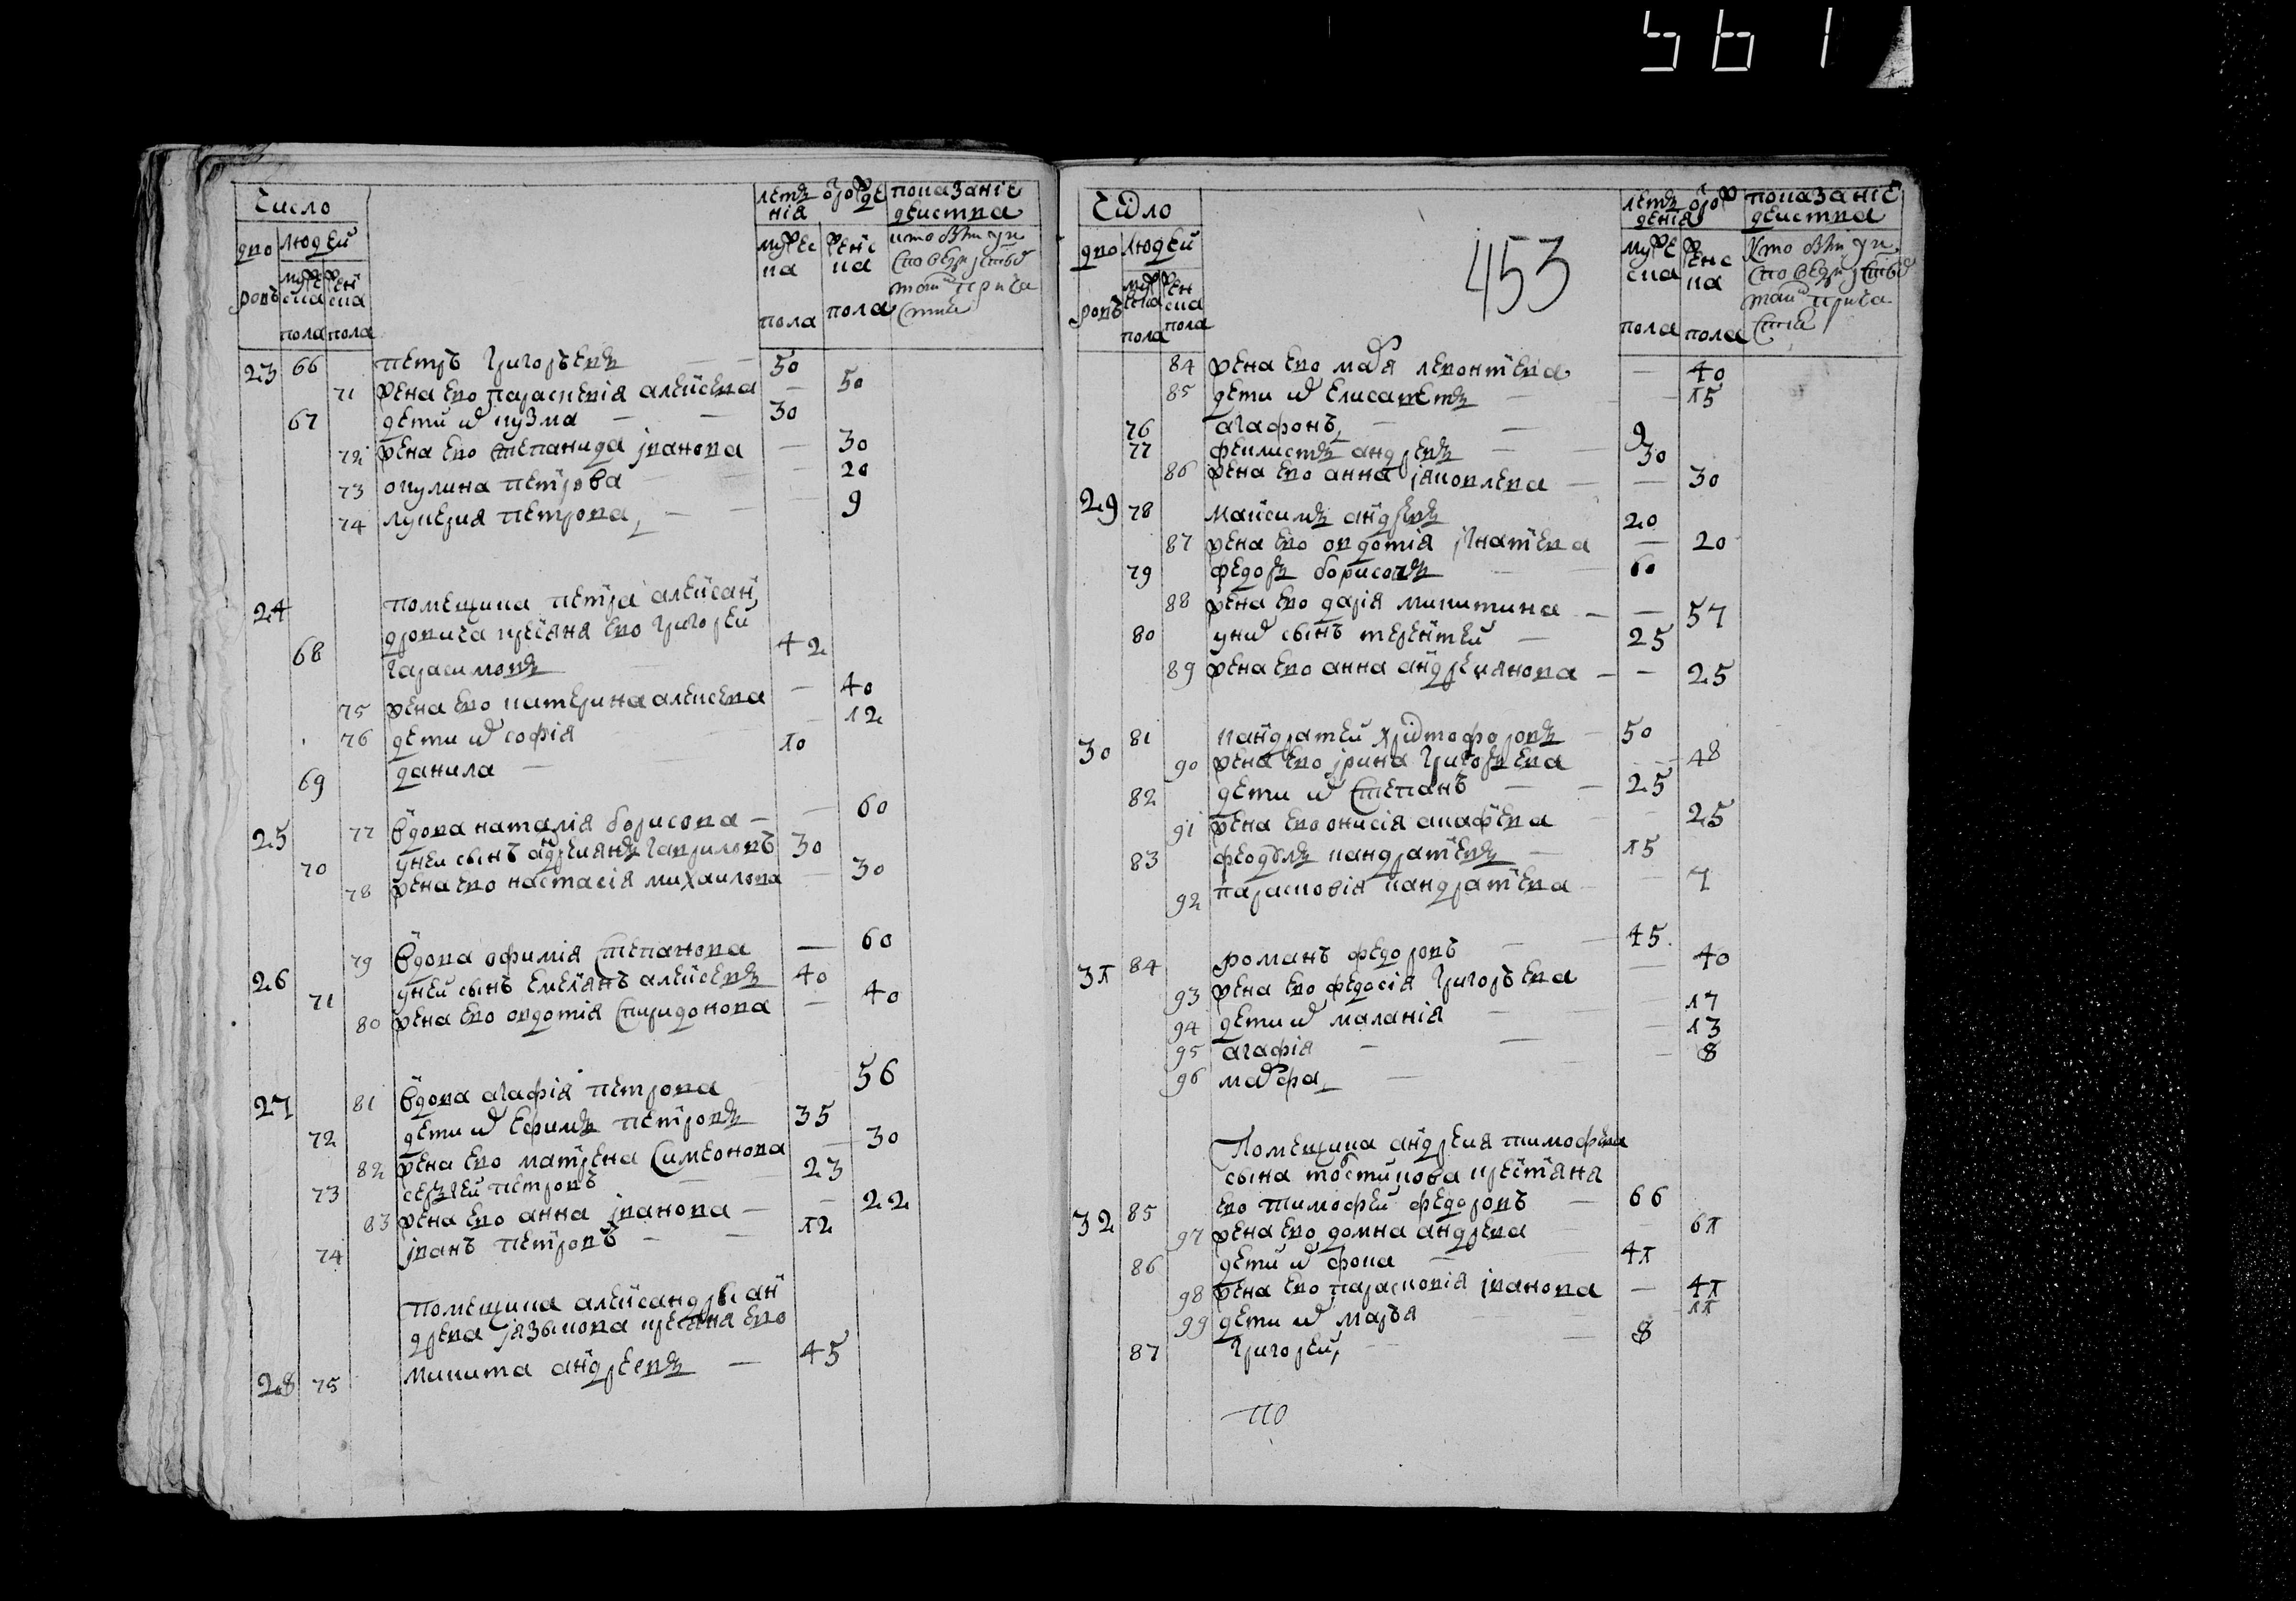 561
Число
дво
ровъ
людей
мужес
ка
пола
женс
ка
пола
лѣтъ
нія
мужес
ка
пола
женс
ка
пола
показаніе
действа
кто
23 66 петръ григорьевъ 50
71 жена ево параскевія алеѯева — 50
67 дети их кузма — 30
72 жена ево степанида іванова — 30
73 окулина петрова — 20
74 лукерия петрова — 9
24 помещика петра алеѯан
дровича крестянѧ ево григорей
68 гарасимовъ 42
75 жена ево катерина алеѯева — 40
76 дети их софія — 12
69 данила — 10
25 77 вдова наталія борисова — 60
70 у неи сынъ андреянъ гавриловъ 30
78 жена ево настасія михаилова — 30
26 79 вдова офимія степанова — 60
71 у неи сынъ емелянъ алеѯевъ 40
80 жена ево овдотія спиридонова — 40
27 81 вдова агафія петрова 56
72 дети их ефимъ петровъ 35
82 жена ево матрена симеонова — 30
73 сергей петровъ 23
83 жена ево анна іванова — 22
74 іванъ петровъ — 12
помещика алеѯандры ан
древа языкова крестяня ево
28 75 микита андреевъ — 45
453
Число
дво
ровъ
людей
мужес
ка
пола
женс
ка
пола
лѣтъ
дения
мужес
ка
пола
женс
ка
пола
показаніе
действа
Кто
84 жена ево марѧ леонтева — 40
85 дети их елисаветъ — 15
76 агафонъ — 9
77 феклистъ андревъ — 30
86 жена ево анна яковлева — 30
29 78 маѯимъ андревъ 20
87 жена ево овдотія ігнатева — 20
79 федоръ борисовъ — 60
88 жена ево дарія микитина — 57
80 у них сынъ терентей — 25
89 жена ево анна андреянова — 25
30 81 кандратей христофоровъ — 50
90 жена ево ірина григорьева — 48
82 дети их степанъ — 25
91 жена ево онисія акафева — 25
83 феодулъ кандратевъ — 15
92 парасковія кандратева — 7
31 84 романъ федоровъ — 45
93 жена ево федосія григорьева — 40
94 дети их маланія — 17
95 агафія — 13
96 марфа — 8
Помещика андрея тимофеева
сына крестяня
32 85 ево тимофей федоровъ — 66
97 жена ево домна андрева — 61
86 дети их фока — 41
98 жена ево парасковія іванова — 41
99 дети их марья — 11
87 григорей — 8
по